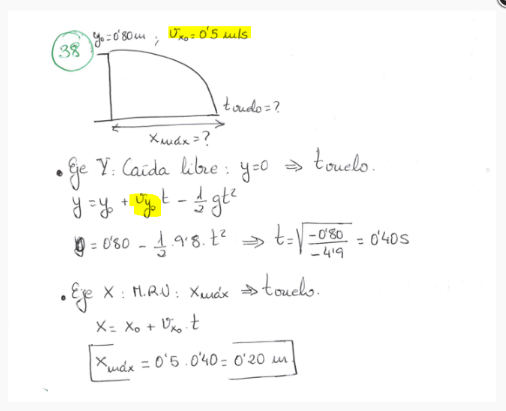 38 y₀ = 0'80 m ; Vx₀ = 0'5 m/s
t suelo = ?
Xmáx = ?
• Eje Y: Caída libre: y=0 ⇒ t suelo.
y = y₀ + Vy₀ t - 1/2 gt²
0 = 0'80 - 1/2 · 9'8 · t² ⇒ t = √(-0'80/-4'9) = 0'40s
• Eje X: M.R.U: Xmáx ⇒ t suelo.
X = X₀ + Vx₀ · t
Xmáx = 0'5 · 0'40 = 0'20 m